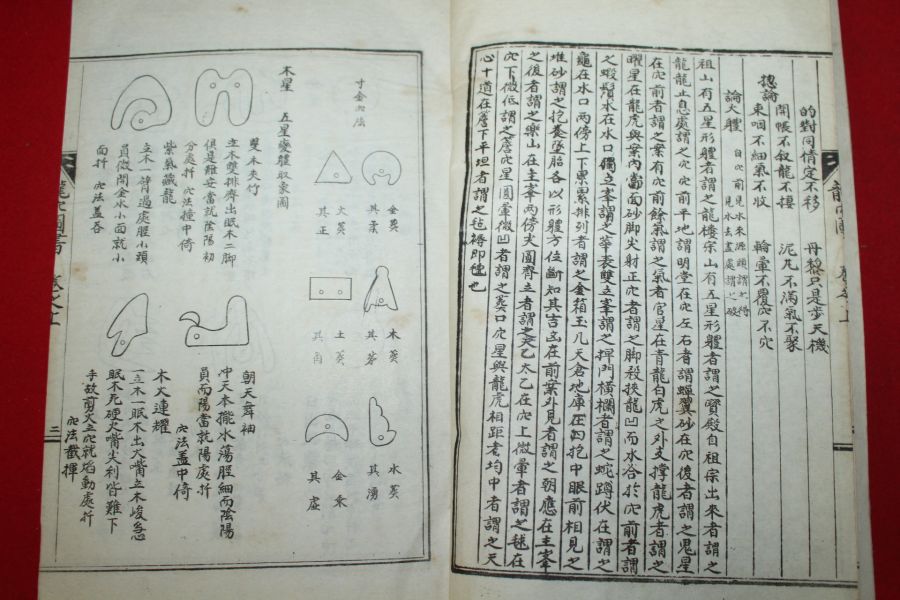 的對同情定不移　只是夸天機
開帳不叙龍不　泥丸不滿氣不聚
摠論
束咽不細氣不收　輪暈不覆穴不穴
論大軆　自穴前見水來源頭謂之得
見水去盡處謂之破
祖山有五星形軆者謂之龍樓宗山有五星形軆者謂之寶殿自祖宗出來者謂之
龍龍止息處謂之穴穴前平地謂明堂在穴左右者謂蟬翼砂在穴後者謂之鬼星
在穴前者謂之案有穴前餘氣謂之氣者官星在青龍白虎之外支撐龍虎者謂之
曜星在龍虎與案內當面砂脚尖射正穴者謂之脚殺挾龍凹而水谷於穴前者謂
之蝦鬚水在水口獨立峯謂之華表雙立峯謂之捍門橫欄者謂之蛇蹲伏在謂之
龜在水口兩傍上下累累排列者謂之金箱玉几天倉地庫在囙抱中眼前相見之
堆砂謂之抱養墜胎各以形軆方位斷知其吉凶在前案外見者謂之朝應在主峯
之後者謂之樂山在主峯兩傍尖圓齊立者謂之天乙太乙在穴上微暈者謂之毬在
穴下微低謂之簷穴星圓暈微凹者謂之葬口穴星與龍虎相距者均中者謂之天
心十道在簷下平坦者謂之毬褥即氈也
金葬
其柔
火葬
其正
木葬
其芽
土葬
其角
水葬
其湧
金乘
其虛
五星變軆取象圖
木星
雙木夾竹
立木雙排齊出眠木二脚
俱是難安當就陰陽初
分處扦　穴法撞中倚
紫氣藏龍
立木一臂過處脛小頭
員微開金水小面就小
面扦　穴法盖吞
朝天舞袖
冲天木擺水蕩脛細而陰陽
員而陽當就陽處扦
穴法盖中倚
木火連耀
一立木一眠木出火嘴立木峻急
眠木死硬火嘴尖利皆難下
手故剪火立穴就焰動處扦
穴法截揮